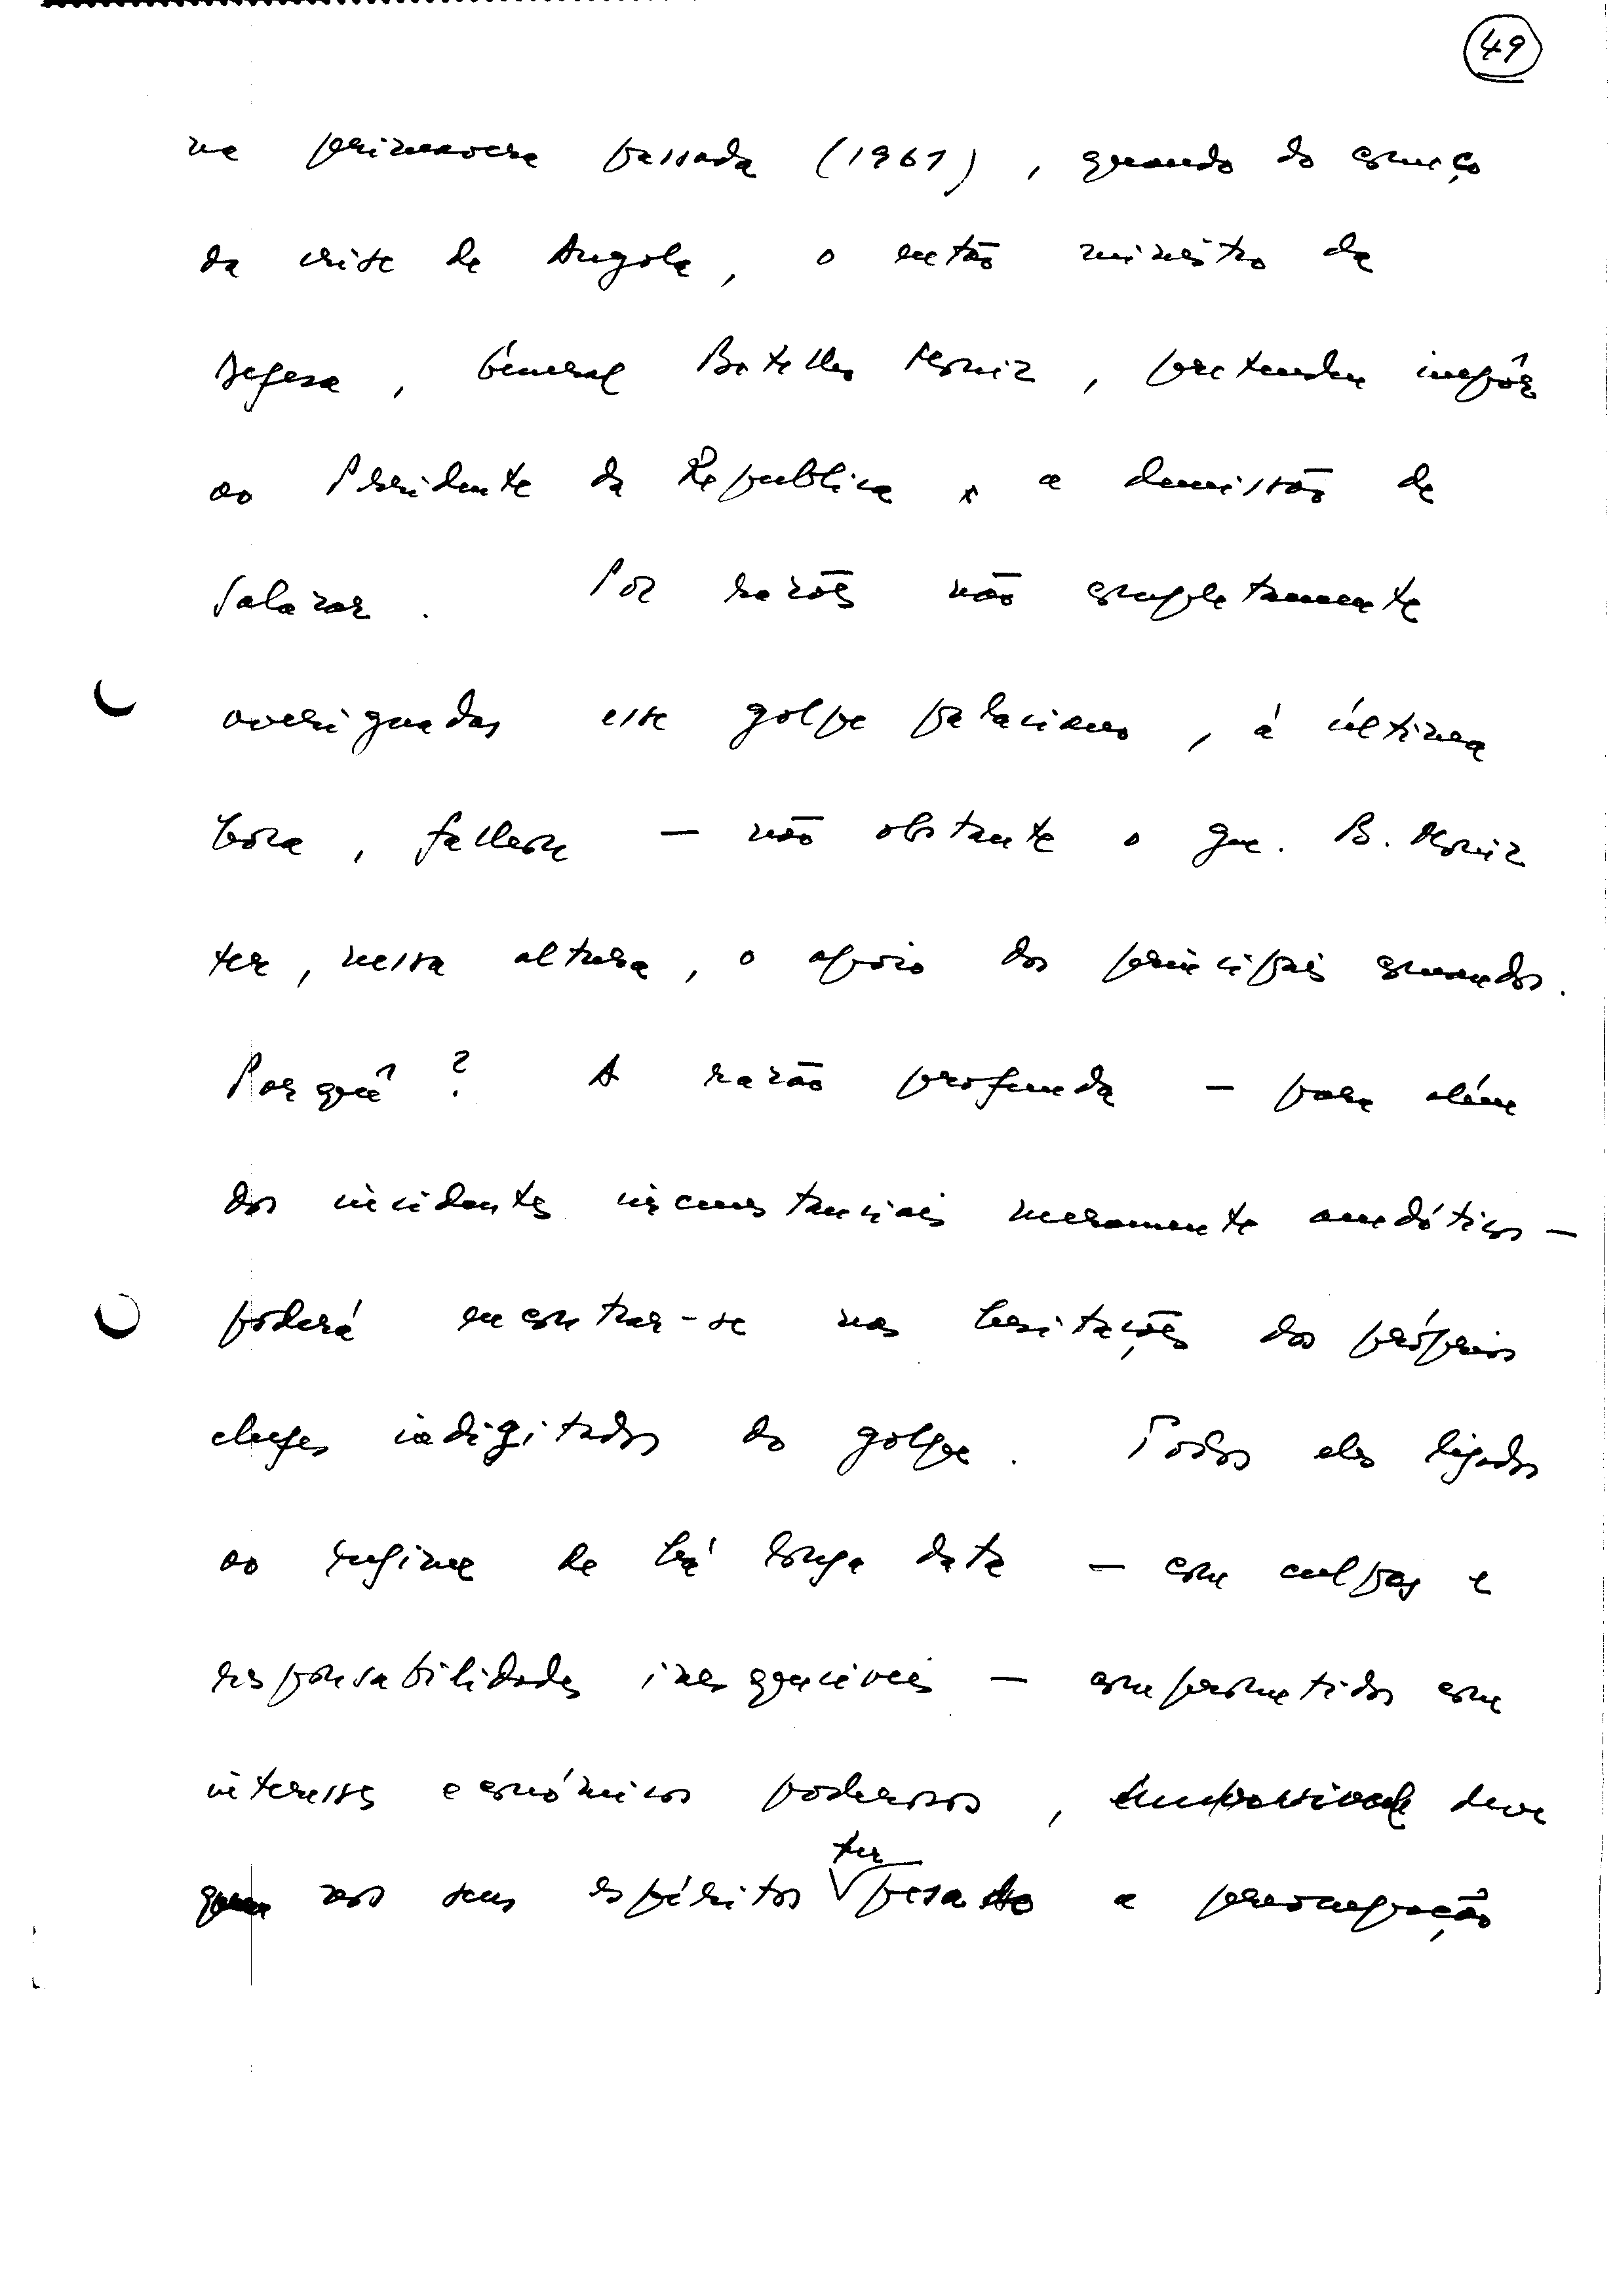 49
na primavera passada (1961), quando do começo
da crise de Angola, o então ministro da
Defesa, General Botelho Moniz, pretendeu impôr
ao Presidente da Republica a demissão de
Salazar. Por razões não completamente
averiguadas esse golpe palaciano, á última
hora, falhou — não obstante o gen. B. Moniz
ter, nessa altura, o apoio dos principais comandos.
Porquê? A razão profunda — para além
dos incidentes circunstanciais meramente anedóticos —
poderá encontrar-se nas hesitações dos próprios
chefes indigitados do golpe. Todos eles ligados
ao regime de há longa data — com culpas e
responsabilidades inesquecíveis — comprometidos com
interesses económicos poderosos, deve
nos seus espíritos ter pesado a preocupação